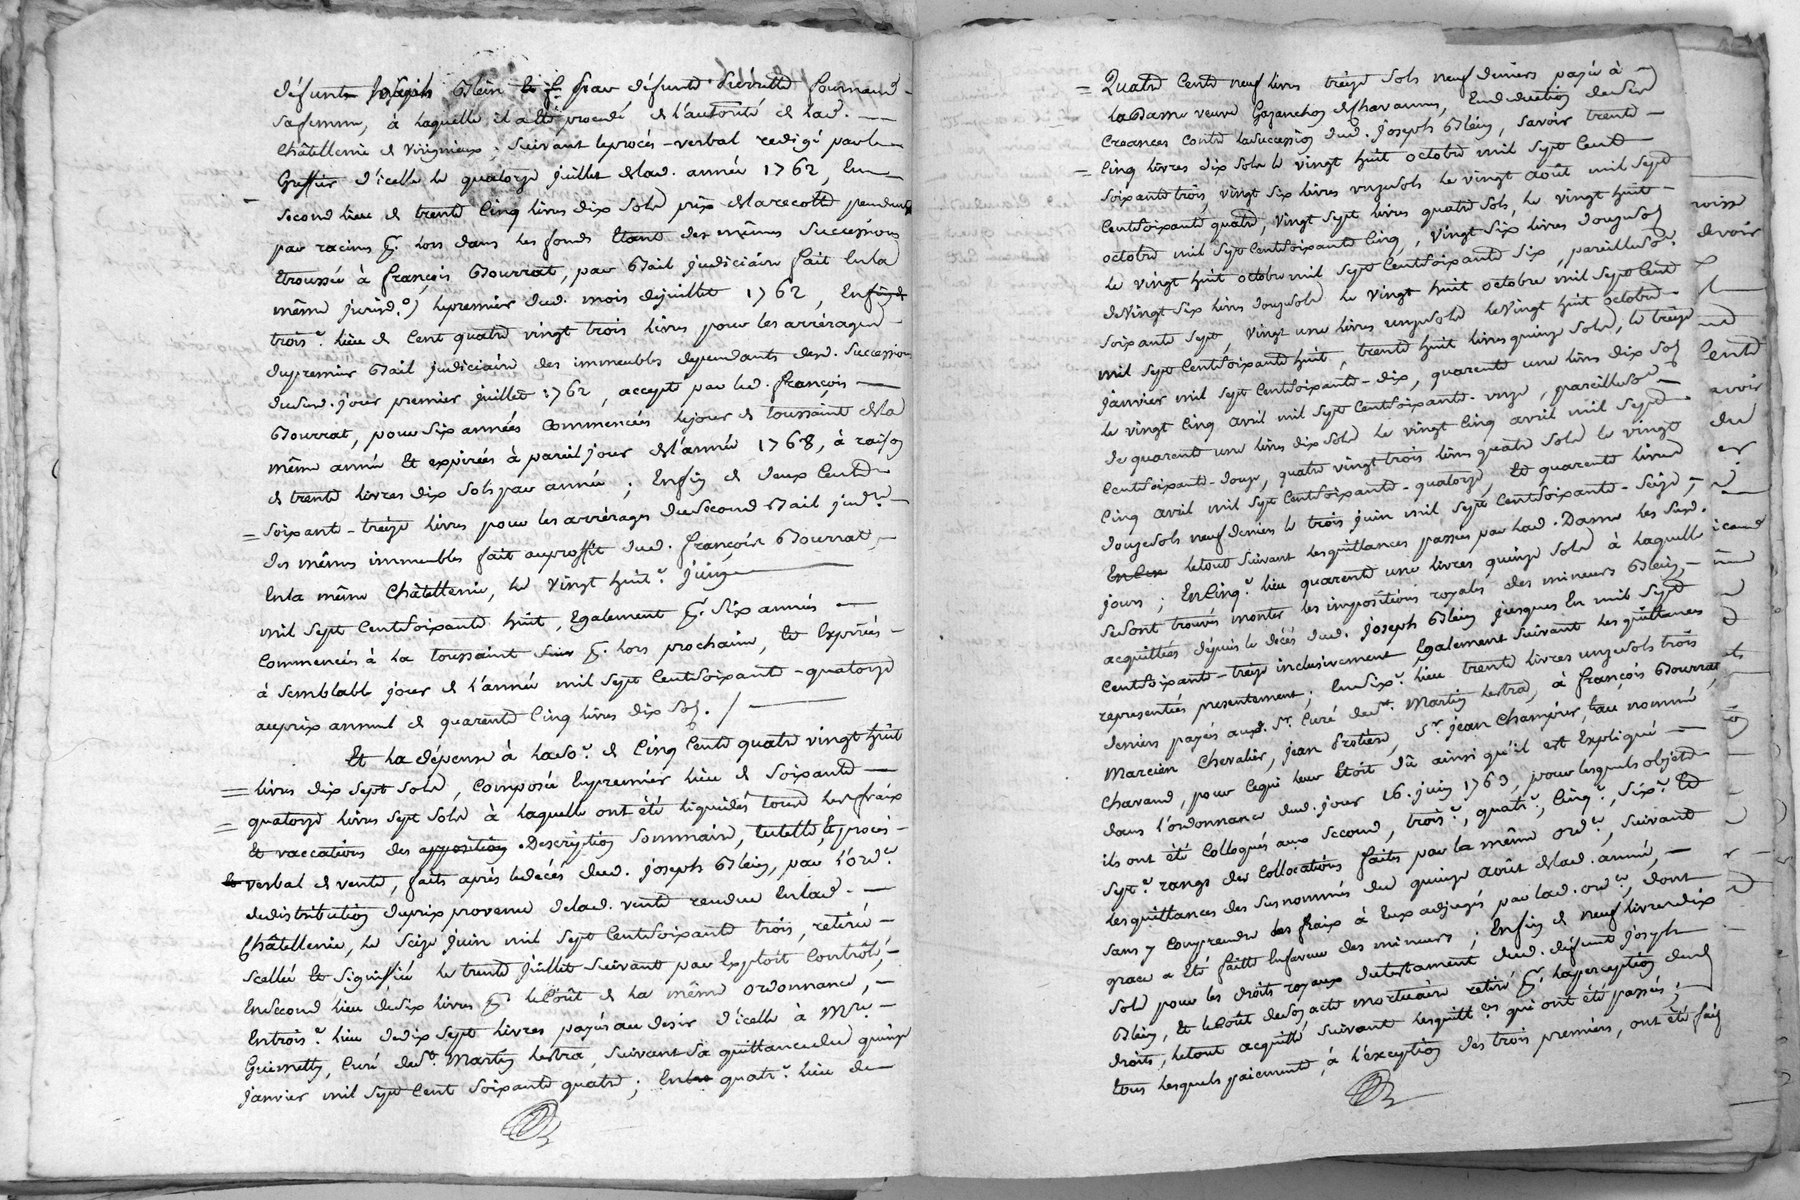 défunt Joseph Blein et f. feue défunte Pierrette fournand
sa femme, à laquelle il a été procédé de l'autorité de lad.
Châtellenie de Virignieux, suivant le procès-verbal redigé par le
Greffier d'icelle le quatorze juillet de lad. année 1762, En
second lieu de trente Cinq livres dix sols prix de la recolte pendante
par racines p. lors dans les fonds étant des mêmes successions
troussée à françois Bourrat, par Bail judiciaire fait en la
même jurid.on le premier dud. mois de juillet 1762, En
trois.e lieu de Cent quatre vingt trois livres pour les arrérages
du premier Bail judiciaire des immeubles dependants desd. successions
dusud. jour premier juillet 1762, accepté par led. françois
Bourrat, pour six années Commencées le jour de toussaint de la
même année Et expirées à pareil jour de l'année 1768, à raison
de trente livres dix sols par année ; Enfin de deux Cents
soixante-treize livres pour les arrérages du second Bail jud.re
des mêmes immeubles fait au proffit dud. françois Bourrat,
En la même Châtellenie, le vingt huit.e juin
mil sept Cent soixante huit, Egalement p. six années
Commencées à la toussaint p. lors prochaine, Et Expirées
à semblable jour de l'année mil sept Cent soixante-quatorze
au prix annuel de quarente Cinq livres dix sols. /
Et la dépense à lad. so.e de Cinq Cents quatre vingt huit
livres dix sept sols, Composée En premier lieu de soixante
quatorze livres sept sols à laquelle ont été liquidés tous les fraix
Et vaccations des apposition Description sommaire, tutelle, Et procès-
verbal de vente, faits après le décés dud. joseph Blein, par l'ord.ce
de distribution du prix provenu de lad. vente rendue En lad.
Châtellenie, le seize juin mil sept Cent soixante trois, retirée
scellée Et signifiée le trente juillet suivant par Exploit Controlé,
En second lieu de six livres p. le Coût de la même ordonnance,
En trois.e lieu de dix sept livres payés au desir d'icelle à Mre
Guemetty, Curé de St. Martin lestra, suivant sa quittance du quinze
janvier mil sept Cent soixante quatre ; En quatr.e lieu de
Quatre Cents neuf livres treize sols neuf deniers payés à
la Dame veuve Gajanchon de Chavannes, En deduction de ses
Creances Contre la succession dud. joseph Blein, savoir trente
Cinq livres dix sols le vingt huit octobre mil sept Cent
soixante trois, vingt six livres onze sols le vingt août mil sept
Cent soixante quatre, vingt sept livres quatre sols, le vingt huit
octobre mil sept Cent soixante Cinq, vingt six livres douze sols
le vingt huit octobre mil sept Cent soixante six, pareille so.e
de vingt six livres douze sols le vingt huit octobre mil sept Cent
soixante sept, vingt une livres onze sols le vingt huit octobre
mil sept Cent soixante huit, trente huit livres quinze sols, le treize
janvier mil sept Cent soixante-dix, quarente une livres dix sols
le vingt Cinq avril mil sept Cent soixante-onze, pareille so.e
de quarente une livres dix sols le vingt Cinq avril mil sept
Cent soixante-douze, quatre vingt trois livres quatre sols le vingt
Cinq avril mil sept Cent soixante-quatorze, Et quarente livres
douze sols neuf deniers le trois juin mil sept Cent soixante-seize,
le tout suivant les quittances passées par lad. Dame les susd.
jours ; En Cinq.e lieu quarente une livres quinze sols à laquelle
se sont trouvés monter les impositions royales des mineurs Blein,
acquittées depuis le décès dud. joseph Blein jusques En mil sept
Cent soixante-treize inclusivement Egalement suivant les quittances
representées presentement ; En six.e lieu trente livres onze sols trois
deniers payés aud. Sr. Curé de St. Martin lestra, à françois Bourrat
Marcien Chevalier, jean Protiere, Sr. jean Champier, au nommé
Chavand, pour Ce qui leur étoit dû ainsi qu'il est Expliqué
dans l'ordonnance dud. jour 16. juin 1763, pour lesquels objets
ils ont été Colloqués aux second, trois.e, quatr.e, Cinq.e, six.e Et
sept.e rangs des Collocations faites par la même ord.ce, suivant
les quittances des susnommés du quinze août de lad. année,
sans y Comprendre les fraix à Eux adjugés par lad. ord.ce, dont
grace a été faitte En faveur des mineurs ; Enfin de neuf livres dix
sols pour les droits royaux du testament dud. défunt joseph
Blein, Et le Coût de son acte mortuaire retiré p. la perception desd.
droits, le tout acquitté suivant les quitt.ces qui ont été passées ;
tous lesquels paiements, à l'exception des trois premiers, ont été faits